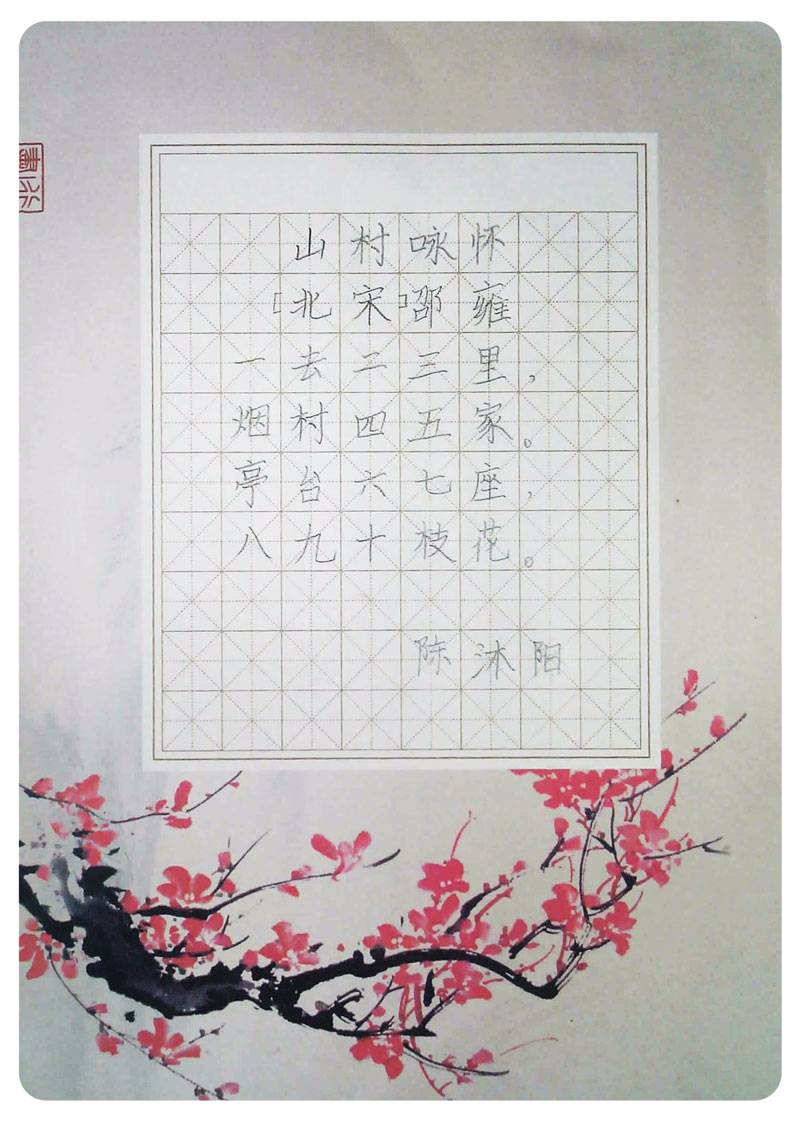 山村咏怀
[北宋]邵雍
一去二三里，
烟村四五家。
亭台六七座，
八九十枝花。
陈沐阳